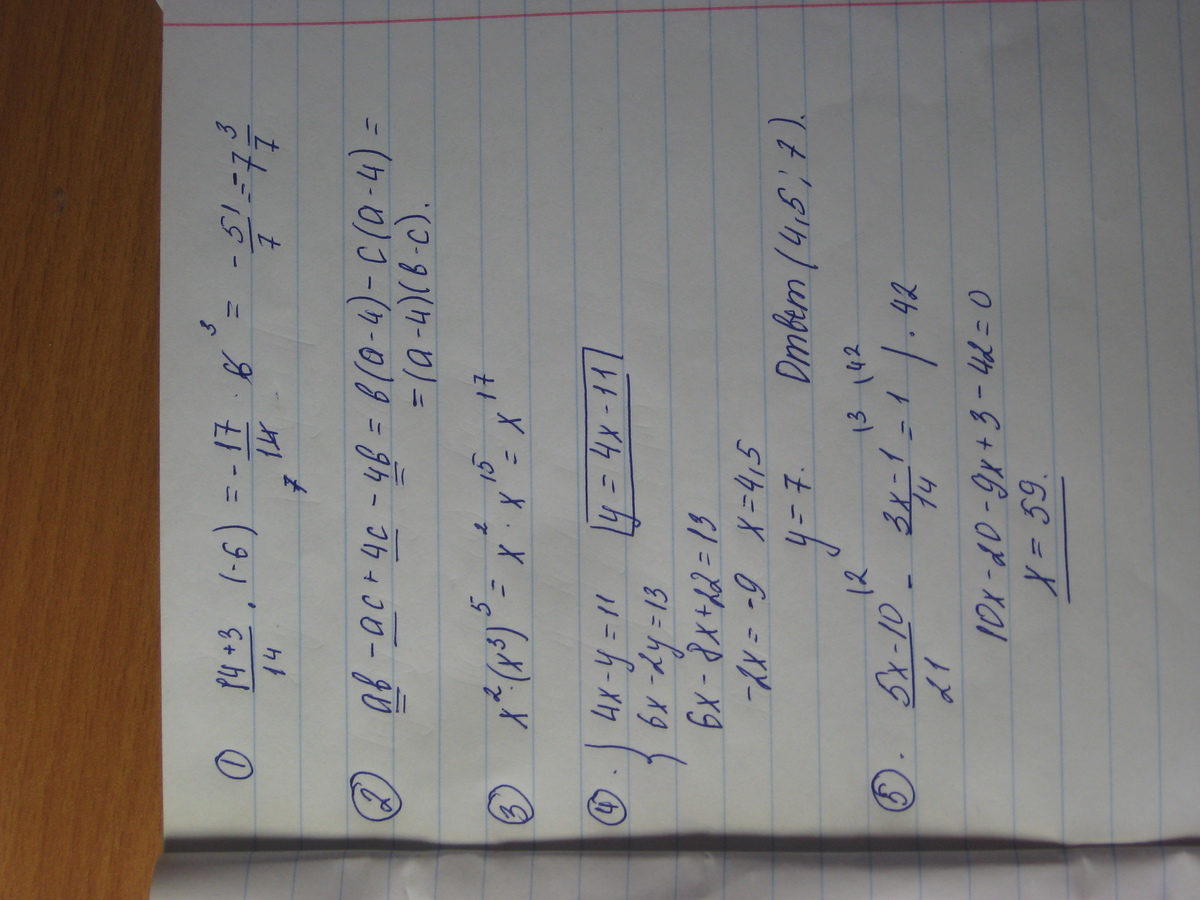 ① 14+3/14 · (-6) = -17/14 · 6 3 = -51/7 = 7 3/7
7
② ab - ac + 4c - 4b = b(a-4) - c(a-4) =
= (a-4)(b-c).
③ x²·(x³)⁵ = x²·x¹⁵ = x¹⁷
④. { 4x-y=11 y = 4x-11
6x-2y=13
6x - 8x+22=13
-2x = -9 x=4,5
y=7. Ответ (4,5; 7).
⑤. 5x-10/21 \2 - 3x-1/14 \3 = 1 \42 | · 42
10x-20-9x+3-42=0
x = 59.